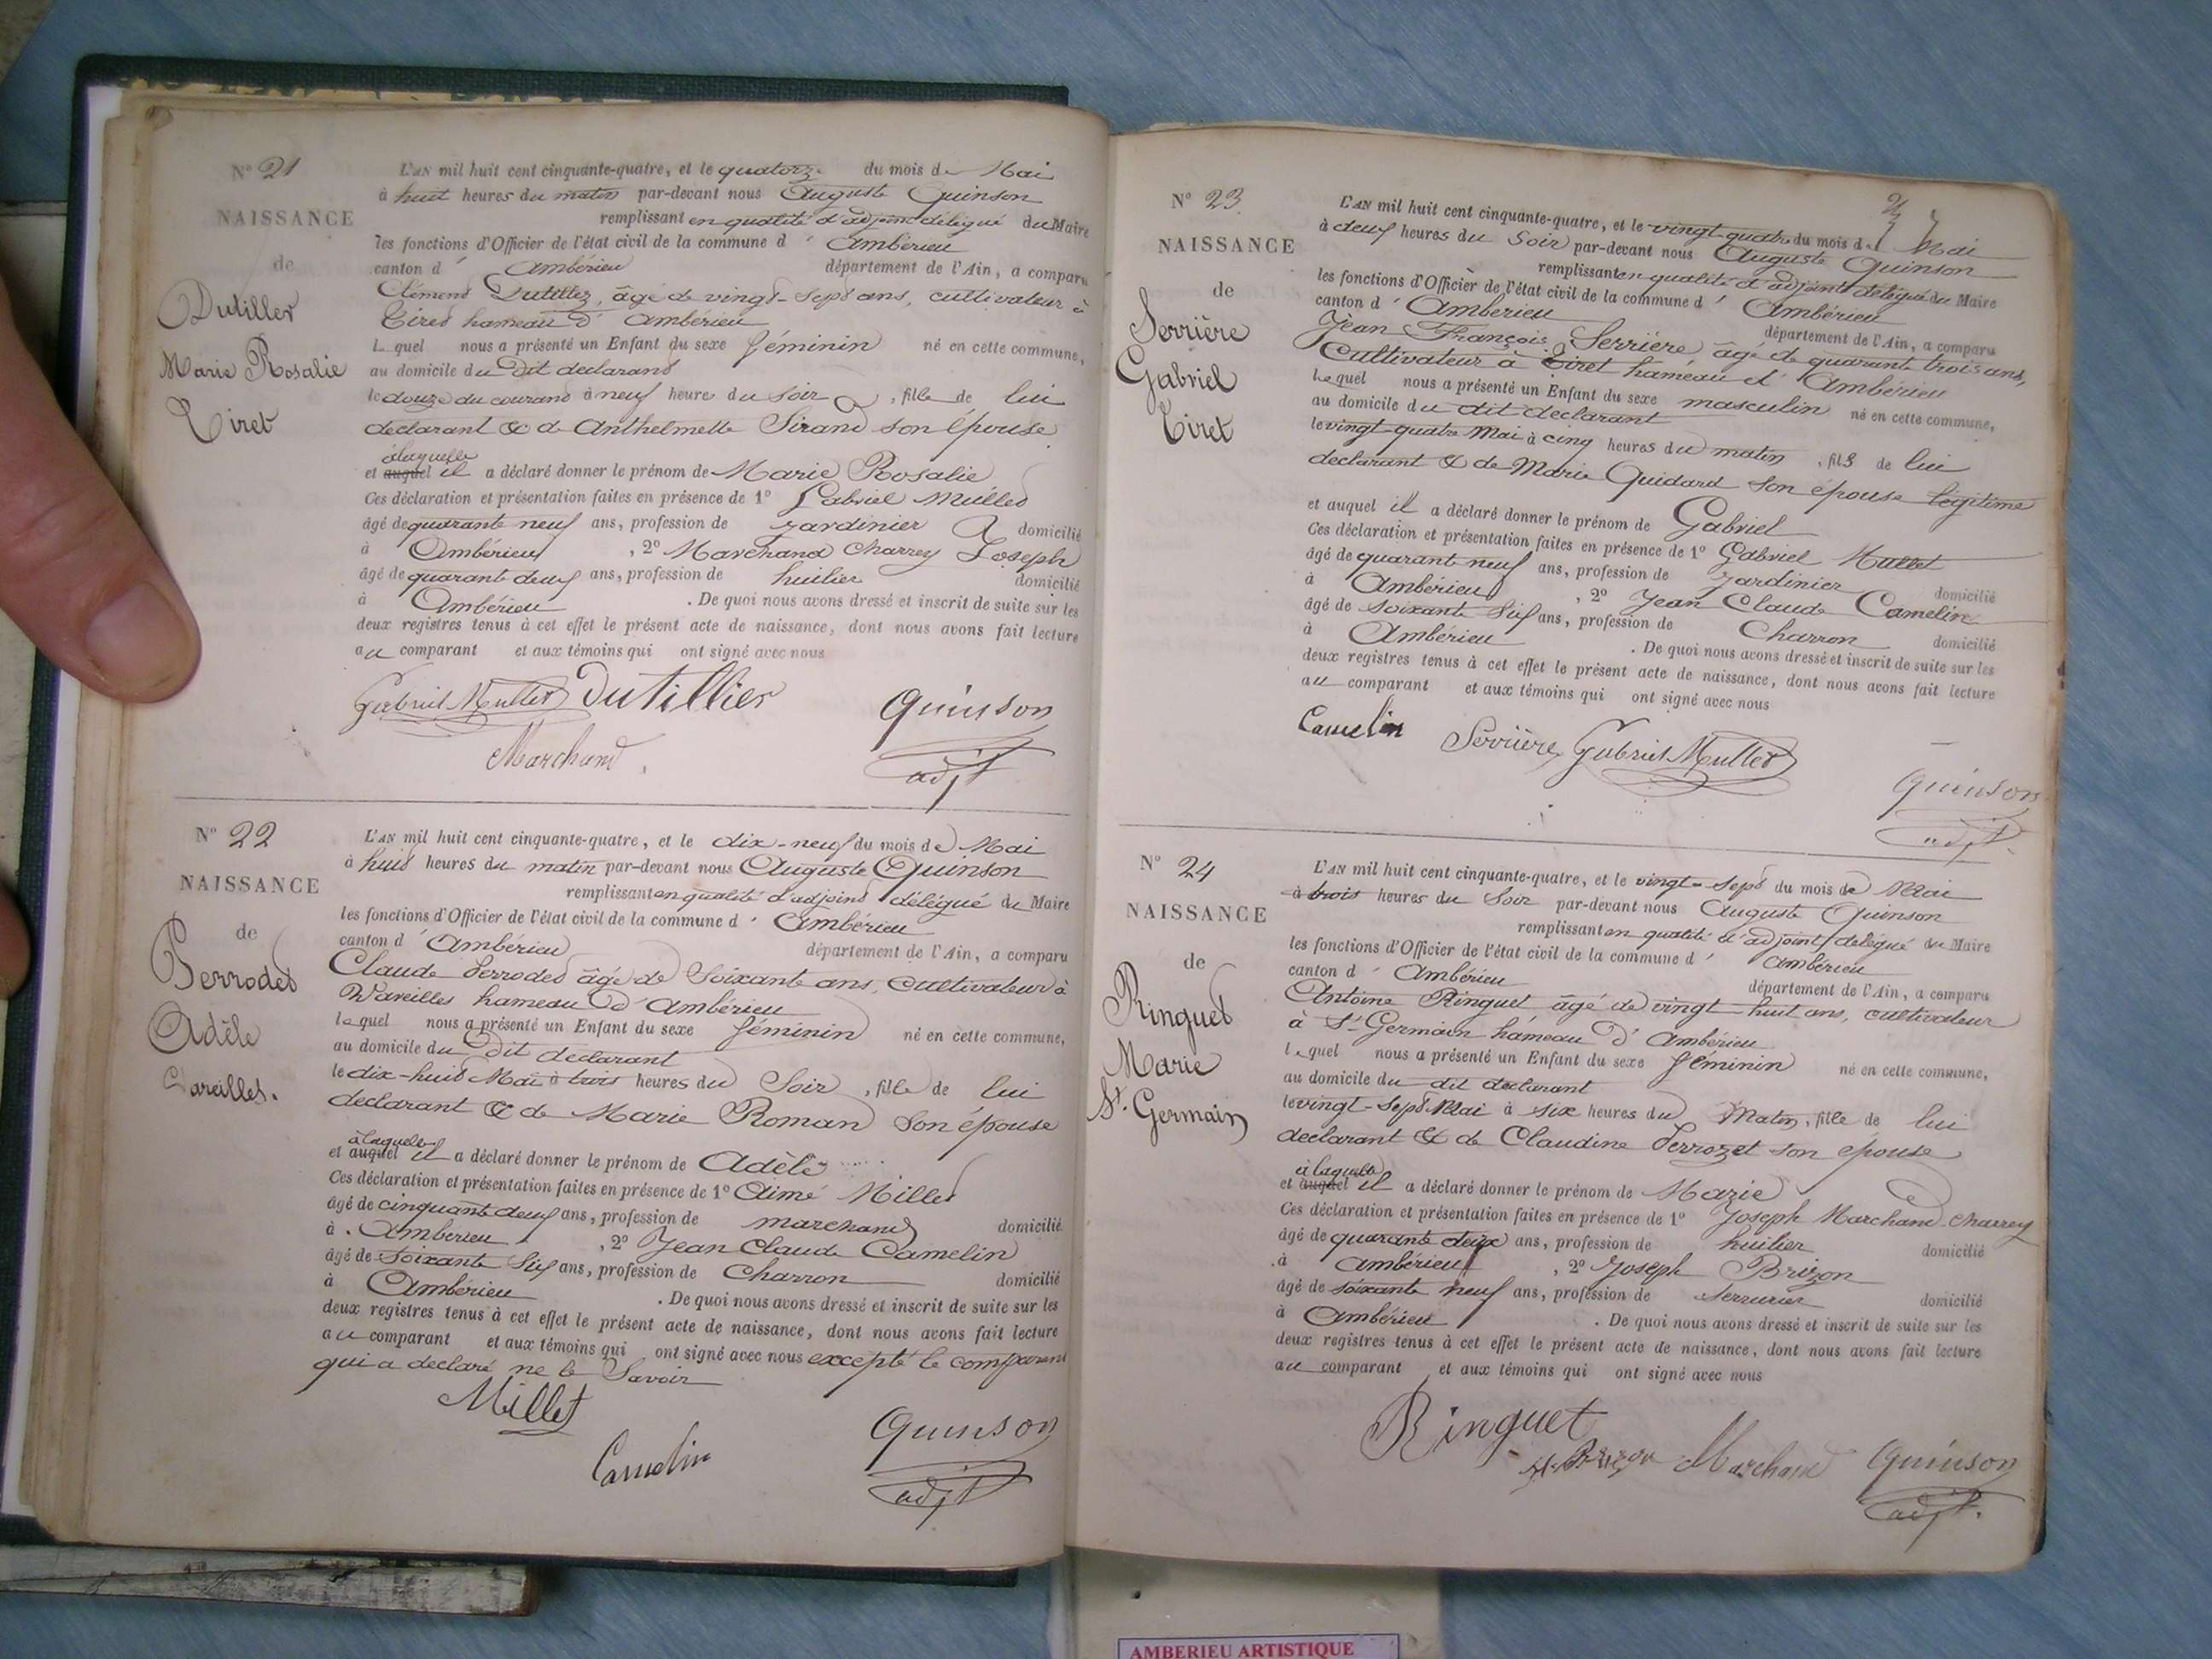 N° 21
NAISSANCE
de
Dutiller
Marie Rosalie
Tiret
L'AN mil huit cent cinquante-quatre, et le quatorze du mois de Mai
à huit heures du matin par-devant nous Auguste Quinson
remplissant en qualité d'adjoint délégué du Maire
les fonctions d'Officier de l'état civil de la commune d' Ambérieu
canton d' Ambérieu département de l'Ain, a comparu
Clément Dutillez, âgé de vingt-sept ans, cultivateur à
Tiret hameau d' Ambérieu
Lequel nous a présenté un Enfant du sexe féminin né en cette commune,
au domicile du dit declarant
le douze du courant à neuf heures du soir, fille de lui
declarant & de Anthelmette Sirand son épouse
à laquelle
et auquel il a déclaré donner le prénom de Marie Rosalie
Ces déclaration et présentation faites en présence de 1° Gabriel Mullet
âgé de quarante neuf ans, profession de jardinier domicilié
à Ambérieu, 2° Marchand Charrey Joseph
âgé de quarante deux ans, profession de huilier domicilié
à Ambérieu. De quoi nous avons dressé et inscrit de suite sur les
deux registres tenus à cet effet le présent acte de naissance, dont nous avons fait lecture
au comparant et aux témoins qui ont signé avec nous
Gabriel Mullet Dutillier Quinson
Marchand adjt
N° 22
NAISSANCE
de
Perrodet
Adèle
Vareilles.
L'AN mil huit cent cinquante-quatre, et le dix-neuf du mois de Mai
à huit heures du matin par-devant nous Auguste Quinson
remplissant en qualité d'adjoint délégué du Maire
les fonctions d'Officier de l'état civil de la commune d' Ambérieu
canton d' Ambérieu département de l'Ain, a comparu
Claude Perrodet âgé de Soixante ans, cultivateur à
Vareilles hameau d' Ambérieu
lequel nous a présenté un Enfant du sexe féminin né en cette commune,
au domicile du dit declarant
le dix-huit Mai à trois heures du Soir, fille de lui
declarant & de Marie Roman son épouse
à laquelle
et auquel il a déclaré donner le prénom de Adèle
Ces déclaration et présentation faites en présence de 1° Aimé Millet
âgé de cinquante deux ans, profession de marchand domicilié
à Amberieu, 2° Jean Claude Camelin
âgé de soixante Six ans, profession de Charron domicilié
à Ambérieu. De quoi nous avons dressé et inscrit de suite sur les
deux registres tenus à cet effet le présent acte de naissance, dont nous avons fait lecture
au comparant et aux témoins qui ont signé avec nous excepté le comparant
qui a declaré ne le Savoir
Millet Quinson
Camelin adjt
N° 23
NAISSANCE
de
Serrière
Gabriel
Tiret
L'AN mil huit cent cinquante-quatre, et le vingt-quatre du mois de Mai
à deux heures du Soir par-devant nous Auguste Quinson
remplissant en qualité d'adjoint délégué du Maire
les fonctions d'Officier de l'état civil de la commune d' Ambérieu
canton d' Amberieu département de l'Ain, a comparu
Jean François Serrière, âgé de quarante trois ans,
Cultivateur à Tiret hameau d' Ambérieu
Lequel nous a présenté un Enfant du sexe masculin né en cette commune,
au domicile du dit declarant
le vingt-quatre Mai à cinq heures du matin, fils de lui
declarant & de Marie Guidard son épouse legitime
et auquel il a déclaré donner le prénom de Gabriel
Ces déclaration et présentation faites en présence de 1° Gabriel Mullet
âgé de quarante neuf ans, profession de jardinier domicilié
à Ambérieu, 2° Jean Claude Camelin
âgé de soixante Six ans, profession de Charron domicilié
à Ambérieu. De quoi nous avons dressé et inscrit de suite sur les
deux registres tenus à cet effet le présent acte de naissance, dont nous avons fait lecture
au comparant et aux témoins qui ont signé avec nous
Camelin Serrière Gabriel Mullet
Quinson
adjt.
N° 24
NAISSANCE
de
Ringuet
Marie
St. Germain
L'AN mil huit cent cinquante-quatre, et le vingt-sept du mois de Mai
à trois heures du Soir par-devant nous Auguste Quinson
remplissant en qualité d'adjoint délégué du Maire
les fonctions d'Officier de l'état civil de la commune d' Ambérieu
canton d' Ambérieu département de l'Ain, a comparu
Antoine Ringuet âgé de vingt huit ans, cultivateur
à St Germain hameau d' Ambérieu
lequel nous a présenté un Enfant du sexe féminin né en cette commune,
au domicile du dit declarant
le vingt-sept Mai à six heures du Matin, fille de lui
declarant & de Claudine Perrozet son épouse
à laquelle
et auquel il a déclaré donner le prénom de Marie
Ces déclaration et présentation faites en présence de 1° Joseph Marchand-Charrey
âgé de quarante deux ans, profession de huilier domicilié
à Ambérieu, 2° Joseph Brizon
âgé de soixante neuf ans, profession de Serrurier domicilié
à Ambérieu. De quoi nous avons dressé et inscrit de suite sur les
deux registres tenus à cet effet le présent acte de naissance, dont nous avons fait lecture
au comparant et aux témoins qui ont signé avec nous
Ringuet
Marchand Quinson
adjt.
AMBERIEU ARTISTIQUE